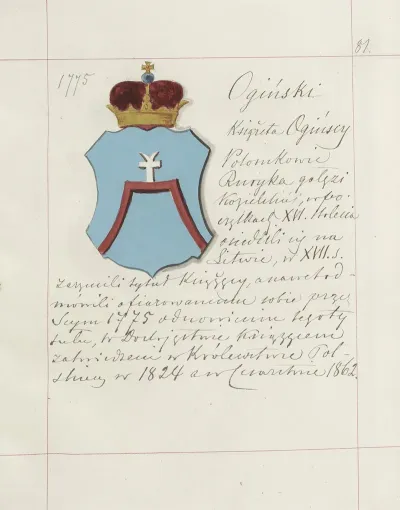 81.
1775
Ogiński
Książęta Ogińscy
Potomkowie
Ruryka gałęzi
Kozielskiej, w po-
czątkach XVI. stolecia
osiedlili się na
Litwie, w XVII. s.
zarzucili tytuł Książęcy, a nawet od-
mówili ofiarowanemu sobie przez
Sejm 1775 odnowieniu tegoż
tytułu, w Książęcem
zatwierdzeni w Królewstwie Pol-
skiem w 1824 a w Cesarstwie 1862.